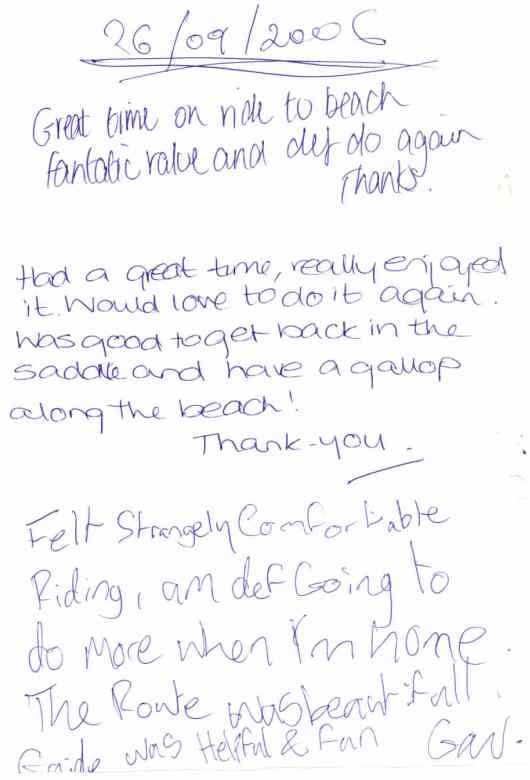 26/09/2006
Great time on ride to beach
fantatic value and def do again
Thanks.
Had a great time, really enjoyed
it. Would love to do it again.
Was good to get back in the
saddle and have a gallop
along the beach!
Thank-you.
Felt Strangely Comfortable
Riding, am def Going to
do More when I'm home.
The Route was beautifull.
Guide was Helpful & Fun Gav.